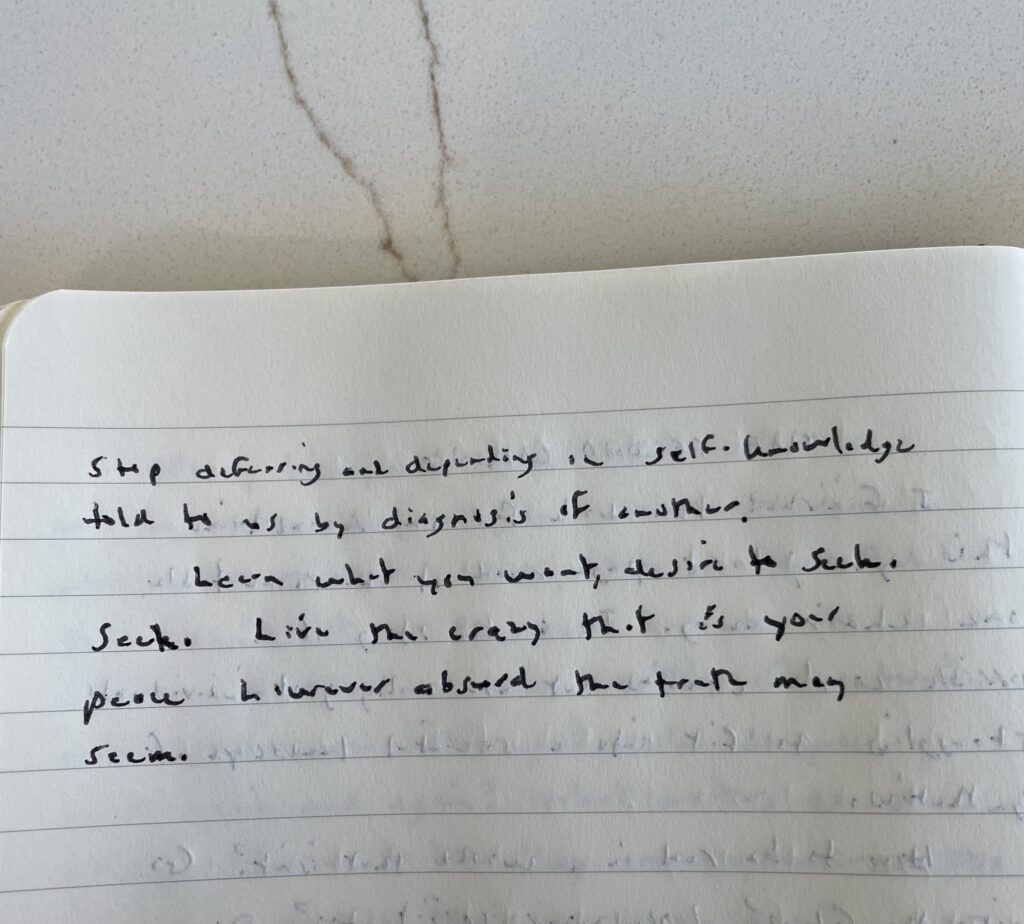 Stop deferring and depending on self-knowledge
told to us by diagnosis of another.
Learn what you want, desire to seek.
Seek. Live the crazy that is your
peace however absurd the truth may
seem.